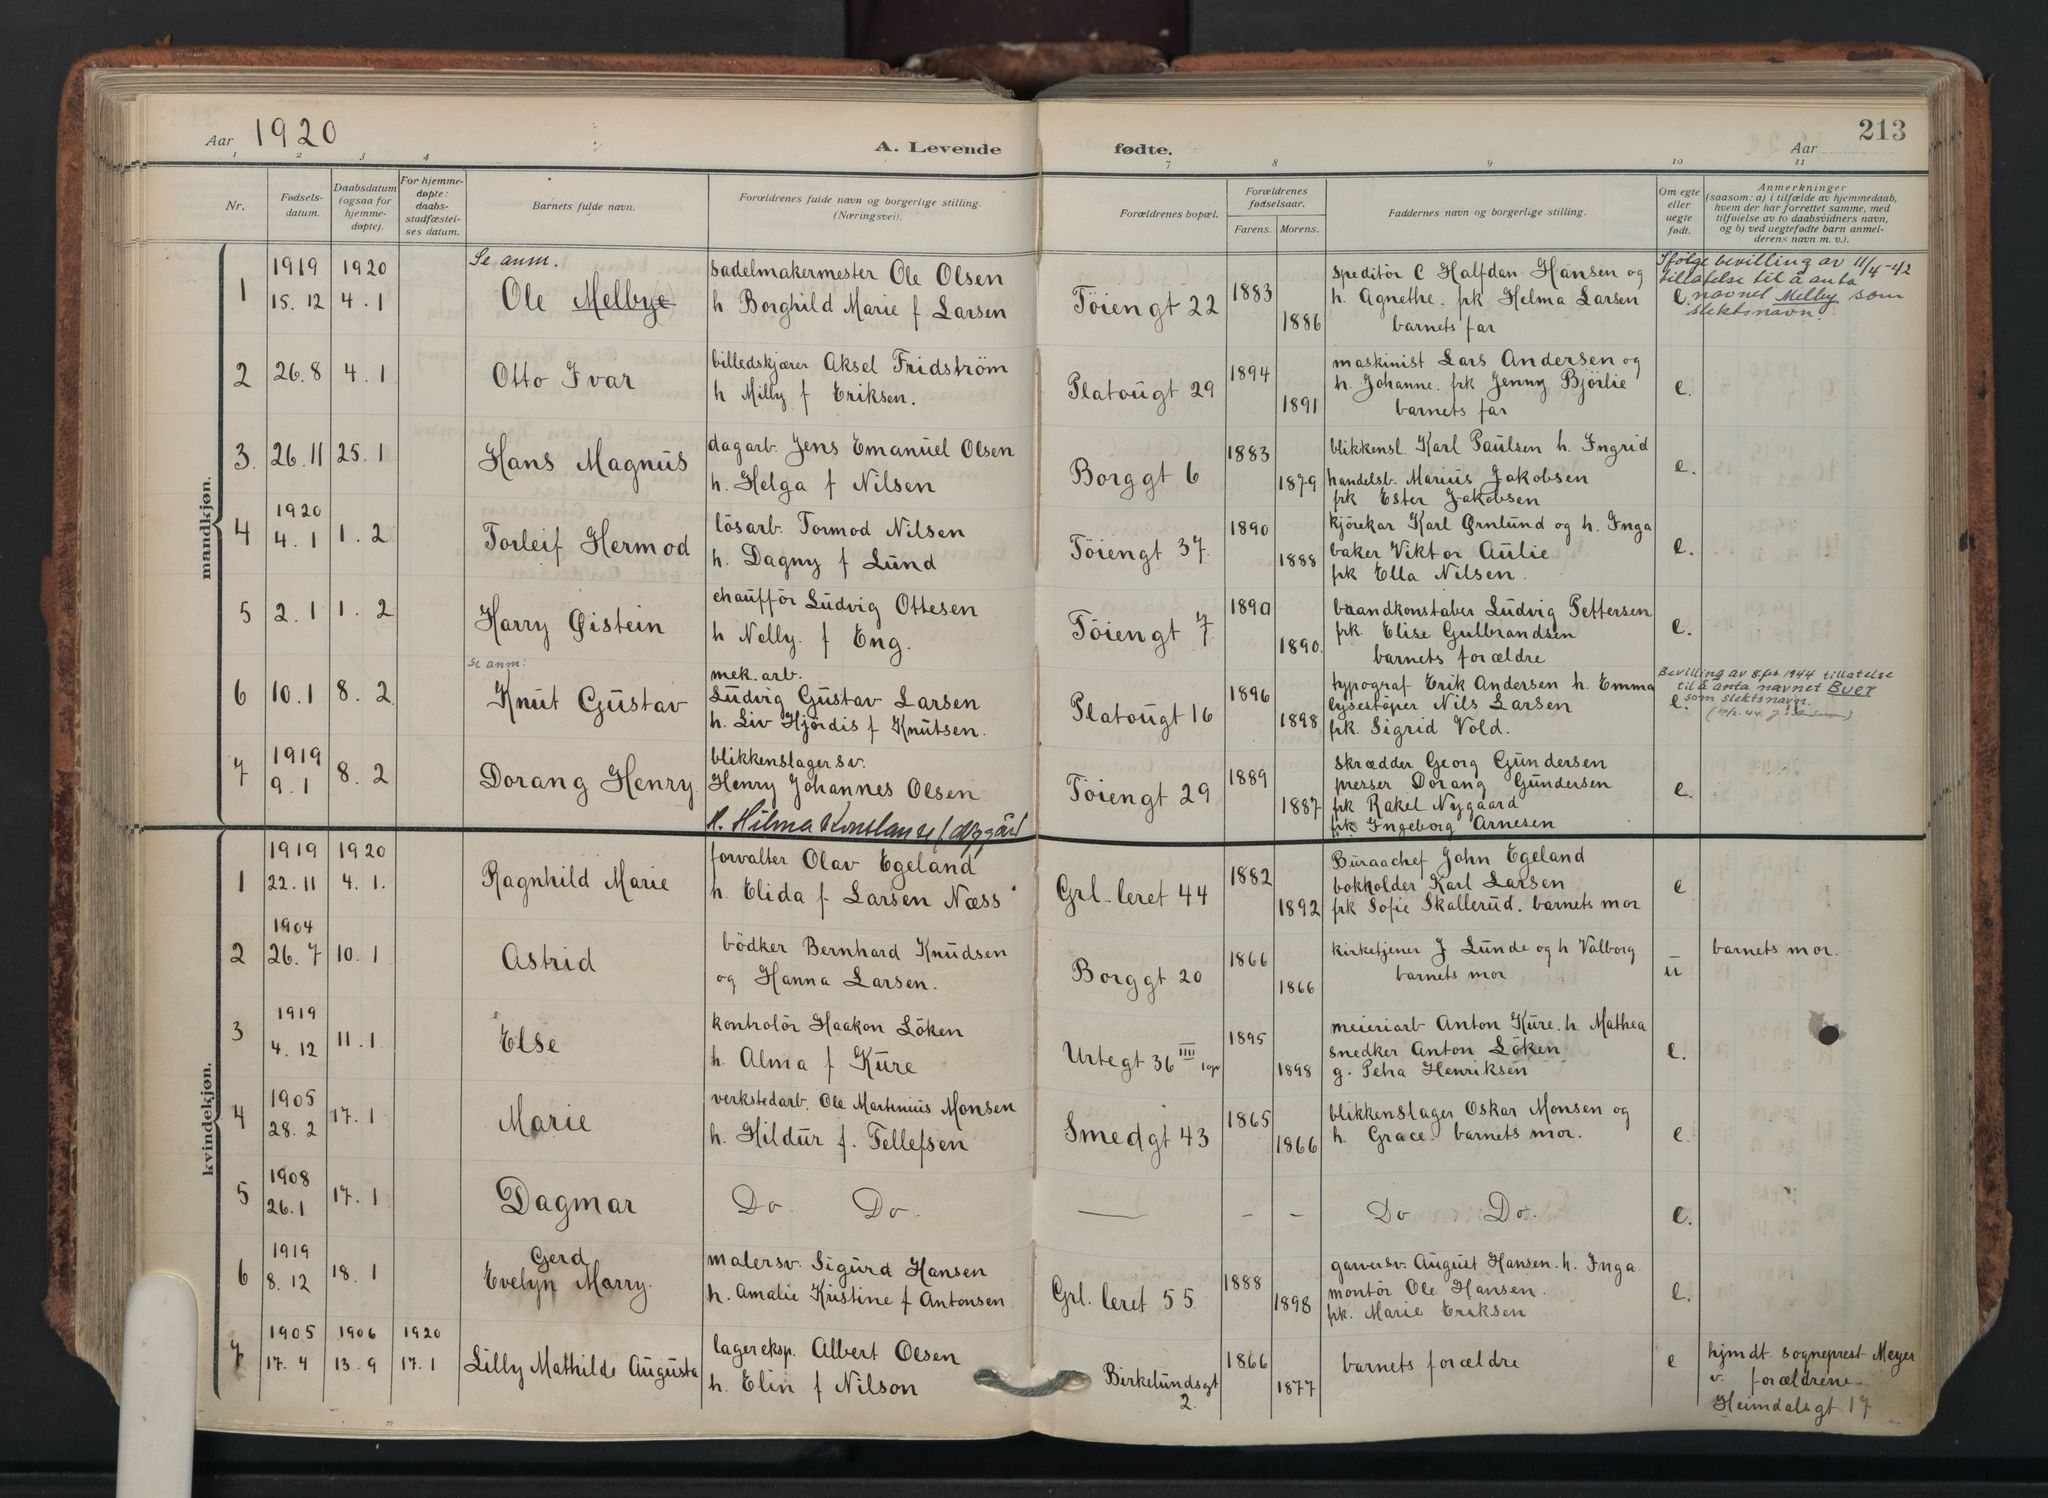 Aar 1920
A. Levende fødte.
Aar
213
1 2 3 4 7 8 9 10 11
Nr.
Fødsels-
datum.
Daabsdatum
(ogsaa for
hjemme-
døpte).
For hjemme-
døpte:
daabs-
stadfæstel-
ses datum.
Barnets fulde navn.
Forældrenes fulde navn og borgerlige stilling.
(Næringsvei).
Forældrenes bopæl.
Forældrenes
fødselsaar.
Farens. Morens.
Faddernes navn og borgerlige stilling.
Om egte
eller
uegte
født.
Anmerkninger
(saasom: a) i tilfælde av hjemmedaab,
hvem der har forrettet samme, med
tilføielse av to daabsvidners navn,
og b) ved uegtefødte barn anmel-
derens navn m. v.).
mandkjøn.
1
1919
15. 12
1920
4. 1
Se anm.
Ole Melbye
sadelmakermester Ole Olsen
h Borghild Marie f Larsen
Töiengt 22
1883
1886
speditör C Halfdan Hansen og
h. Agnethe. frk Helma Larsen
barnets far
e.
Ifölge bevilling av 11/4-42
tillatelse til å anta
navnet Melby som
slektsnavn.
2
26. 8
4. 1
Otto Ivar
billedskjærer Aksel Fridström
h Milly f Eriksen.
Platougt 29
1894
1891
maskinist Lars Andersen og
h. Johanne. frk Jenny Bjørlie
barnets far
e.
3.
26. 11
25. 1
Hans Magnus
dagarb. Jens Emanuel Olsen
h. Helga f Nilsen
Borggt 6
1883
1879
blikkensl. Karl Paulsen h. Ingrid
handelsb. Marius Jakobsen
frk Ester Jakobsen
e.
4
1920
4. 1
1. 2
Torleif Hermod
lösarb. Tormod Nilsen
h. Dagny f Lund
Töiengt 37.
1890
1888
kjörekar Karl Ørnlund og h. Inga
baker Viktor Aulie
frk Ella Nilsen.
e.
5
2. 1
1. 2
Harry Øistein
chaufför Ludvig Ottesen
h Nelly. f Eng.
Töiengt 7
1890
1890.
brandkonstaber Ludvig Pettersen
frk. Elise Gulbrandsen
barnets forældre
e.
6
10. 1
8. 2
Se anm:
Knut Gustav
mek. arb.
Ludvig Gustav Larsen
h. Liv Hjördis f Knutsen.
Platougt 16
1896
1898
typograf Erik Andersen h. Emma
lysestöper Nils Larsen
frk. Sigrid Vold.
e.
Bevilling av 1944 tillatelse
til å anta navnet Buer
som slektsnavn.
7
1919
9. 1
8. 2
Dorang Henry
blikkenslagersv.
Henry Johannes Olsen
h. Hilma Konstanse f Nygård
Töiengt 29
1889
1887
skrædder Georg Gundersen
presser Dorang Gundersen
frk Rakel Nygaard
frk Ingeborg Arnesen
e.
kvindekjøn.
1
1919
22. 11
1920
4. 1.
Ragnhild Marie
forvalter Olav Egeland
h. Elida f Larsen Næss
Grl. leret 44
1882
1892
Buraachef John Egeland
bokholder Karl Larsen
frk Sofie Skallerud. barnets mor
e
2
1904
26. 7
10. 1
Astrid
bödker Bernhard Knudsen
og Hanna Larsen.
Borggt 20
1866
1866
kirketjener J Lunde og h Valborg
barnets mor
u
barnets mor.
3
1919
4. 12
11. 1
Else
kontrolör Haakon Löken
h. Alma f Kure
Urtegt 36 IIII
1895
1898
meieriarb Anton Kure. h. Mathea
snedker Anton Löken
g. Petra Henriksen
e.
4
1905
28. 2
17. 1
Marie
verkstedarb. Ole Martinius Monsen
h. Hildur f. Tellefsen
Smedgt 43
1865
1866
blikkenslager Oskar Monsen og
h. Grace. barnets mor.
e.
5
1908
26. 1
17. 1
Dagmar
Do. Do.
— – –
Do Do.
e.
6
1919
8. 12
18. 1
Gerd
Evelyn Marry.
malersv. Sigurd Hansen
h. Amalie Kristine f Antonsen
Grl. leret 55
1888
1898
garversv. August Hansen. h. Inga
montör Ole Hansen.
frk. Marie Eriksen
e.
7
1905
17. 4
1906
13. 9
1920
17. 1
Lilly Mathilde Augusta
lagereksp. Albert Olsen
h. Elin f Nilson
Birkelundsgt
2.
1866
1877
barnets forældre
e
hjmdt. sogneprest Meyer
v. forældrene.
Heimdalsgt 17